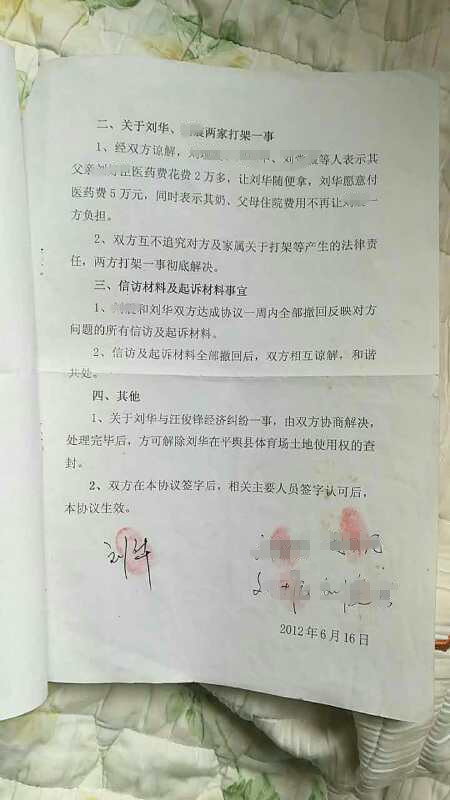 二、关于刘华、 展两家打架一事
1、经双方谅解，刘 、刘 等人表示其
父亲刘 医药费花费2万多，让刘华随便拿，刘华愿意付
医药费5万元，同时表示其奶、父母住院费用不再让刘 一
方负担。
2、双方互不追究对方及家属关于打架等产生的法律责
任，两方打架一事彻底解决。
三、信访材料及起诉材料事宜
1、 展和刘华双方达成协议一周内全部撤回反映对方
问题的所有信访及起诉材料。
2、信访及起诉材料全部撤回后，双方相互谅解，和谐
共处。
四、其他
1、关于刘华与汪俊锋经济纠纷一事，由双方协商解决，
处理完毕后，方可解除刘华在平舆县体育场土地使用权的查
封。
2、双方在本协议签字后，相关主要人员签字认可后，
本协议生效。
刘华
2012年6月16日